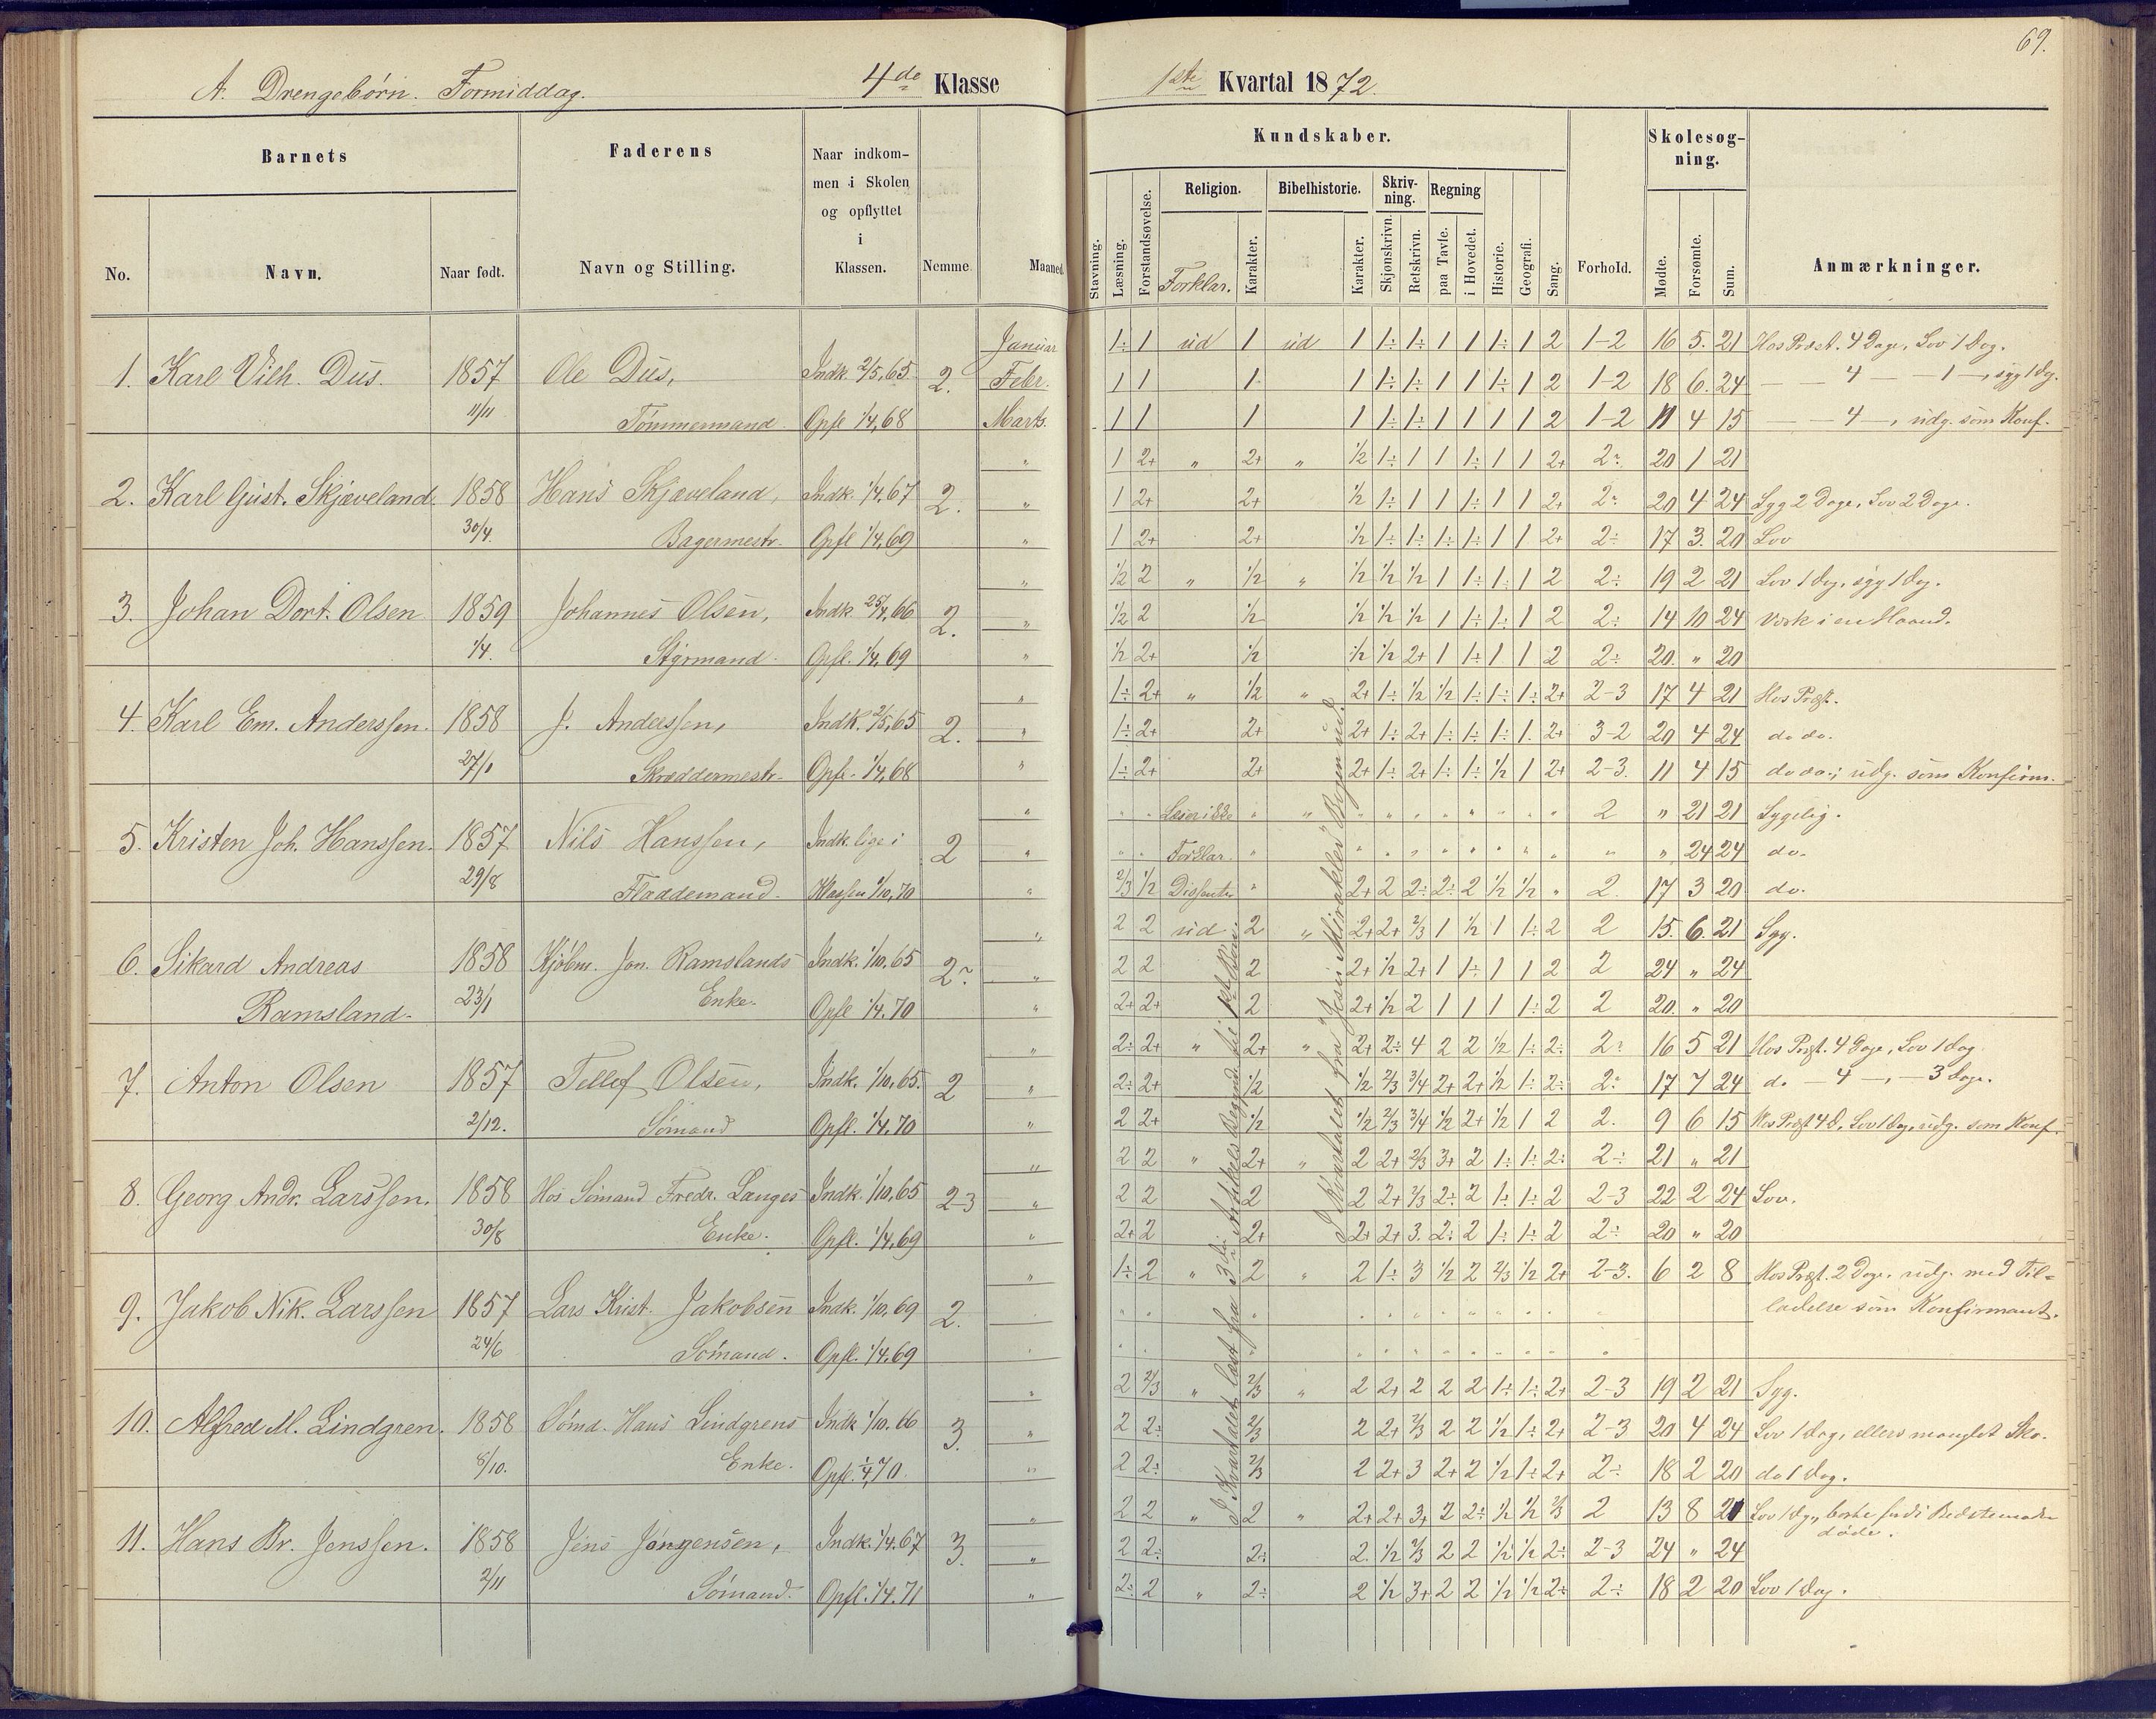 69.
A. Drengebörn. Formiddag. 4de Klasse 1ste Kvartal 1872.
Barnets Faderens Naar indkommen i Skolen og opflyttet i Klassen. Nemme. Maaned.
No. Navn. Naar født. Navn og Stilling.
Kundskaber. Skolesøgning.
Religion. Bibelhistorie. Skrivning. Regning
Stavning. Læsning. Forstandsøvelse. Forklar. Karakter. Karakter. Skjønskrivn. Retskrivn. paa Tavle. i Hovedet. Historie. Geografi. Sang. Forhold. Mødte. Forsømte. Sum. Anmærkninger.
Januar 1÷ 1 ud 1 ud 1 1÷ 1÷ 1 1 1÷ 1 2 1-2 16 5. 21 Hos Præst. 4 Dage, Lov 1 Dag.
1. Karl Vilh. Dus. 1857 Ole Dus, Indk. 2/5, 65 2. Febr. 1 1 1 1 1÷ 1÷ 1 1 1÷ 1 2 1-2 18 6. 24 — — 4 — — 1 —, syg 1 Dg.
11/11 Tömmermand Opfl 1/4, 68 Marts. 1 1 1 1 1÷ 1÷ 1 1 1 1 2 1-2 11 4 15 — — 4 —, udg. som Konf.
" 1 2+ " 2+ " 1/2 1÷ 1 1 1÷ 1 1 2+ 2÷ 20 1 21
2. Karl Gust. Skjæveland. 1858 Hans Skjæveland, Indk. 1/4, 67 2. " 1 2+ 2+ 1/2 1÷ 1 1 1÷ 1 1 2+ 2÷ 20 4 24 Syg 2 Dage, Lov 2 Dage.
30/4. Bagermestr. Opfl 1/4, 69 " 1 2+ 2+ 1/2 1÷ 1÷ 1÷ 1÷ 1 1 2+ 2÷ 17 3. 20 Lov
" 1/2 2 " 1/2 " 1/2 1/2 1/2 1 1÷ 1÷ 1 2 2÷ 19 2 21 Lov 1 Dag, syg 1 Dag.
3. Johan Dort. Olsen 1859 Johannes Olsen, Indk. 25/4, 66 2. " 1/2 2 1/2 1/2 1/2 1/2 1 1÷ 1÷ 1 2 2÷ 14 10 24 Værk i en Haand.
1/4. Styrmand. Opfl. 1/4, 69 " 1/2 2+ 1/2 1/2 1/2 2+ 1 1÷ 1 1 2 2÷ 20. " 20
" 1÷ 2+ " 1/2 " 2+ 1÷ 1/2 1/2 1÷ 1÷ 1÷ 2+ 2-3 17 4 21 Hos Præst.
4. Karl Em. Anderssen. 1858 J. Anderssen, Indk. 2/5, 65 2. " 1÷ 2+ 2+ 2+ 1÷ 2+ 1÷ 1÷ 1÷ 1. 2+ 3-2 20 4 24 do do.
27/1 Skreddermestr. Opfl. 1/4, 68 " 1÷ 2+ 2+ 2+ 1÷ 2+ 1÷ 1÷ 1/2 1 2+ 2-3. 11 4 15 do do.; udg. som Konfirm.
" " " Læser ikke " " " " " " " " " " 2 " 21 21 Sygelig.
5. Kristen Joh. Hanssen. 1857 Nils Hanssen, Indk. lige i 2 " " " Forklar. " " " " " " " " " " " 24 24 do.
29/8 Flaademand. Klassen 1/10, 70 " 2/3 1/2 Dissenter " 2+ 2 2÷ 2÷ 2 1/2 1/2 " 2 17 3 20 do.
" 2 2 ud 2 " 2+ 2+ 2/3 1 1/2 1 1÷ 2 2 15. 6. 21 Syg.
6. Sikard Andreas 1858 Kjöbm. Jon. Ramslands Indk. 1/10, 65 2÷ " 2 2 2 2+ 1/2 2+ 1 1÷ 1 1 2 2 24 " 24
Ramsland. 23/1 Enke. Opfl 1/4, 70 " 2+ 2+ 2 2+ 1/2 2 1 1 1 1÷ 2 2 20. " 20
" 2÷ 2+ " 2+ " 2+ 2÷ 4 2 2 1/2 1÷ 2÷ 2÷ 16 5 21 Hos Præst. 4 Dage, Lov 1 Dag
7. Anton Olsen 1857 Tellef Olsen, Indk. 1/10, 65. 2 " 2÷ 2+ 1/2 1/2 2/3 3/4 2+ 2+ 1/2 1÷ 2÷ 2÷ 17 7 24 do — 4 —, — 3 Dage.
2/12. Sömand Opfl. 1/4, 70 " 2 2+ 1/2 1/2 2/3 3/4 1/2 2+ 1/2 1 2 2. 9 6 15 Hos Præst 4 D, Lov 1 Dag, udg. som Konf.
" 2 2 " 2+ " 2 2+ 2/3 3+ 2 1÷ 1÷ 2÷ 2÷ 21 " 21
8. Georg Andr. Larssen. 1858 Hos Sömand Fredr. Langes Indk. 1/10, 65 2-3 " 2 2 2 2 2+ 2/3 2÷ 2 1÷ 1÷ 2 2-3 22 2 24 Lov.
30/8 Enke. Opfl. 1/4, 69 " 2+ 2 2+ 2+ 2+ 3. 2÷ 2 1÷ 1÷ 2 2÷ 20 " 20
" 1÷ 2 " 2 " 2 1÷ 3 1/2 2 2/3 1/2 2+ 2-3. 6 2 8 Hos Præst. 2 Dage, udg. med Til-
9. Jakob Nik. Larssen 1857 Lars Krist. Jakobsen Indk. 1/10, 69 2. " " " " " " " " " " " ladelse som Konfirmant.
24/6 Sömand. Opfl. 1/4, 69
" 2 2/3 " 2/3 " 2 2+ 2 2 2 1÷ 1÷ 2+ 2-3 19 2 21 Syg.
10. Alfred M. Lindgren. 1858 Sömd. Hans Lindgrens Indk 1/10, 66 3. " 2 2÷ 2/3 2 2+ 2/3 2 2 1/2 1÷ 2+ 2-3 20 4 24 Lov 1 Dag, ellers manglet Sko.
8/10. Enke. Opfl. 1/4, 70. " 2 2÷ 2/3 2 2+ 3 2+ 2 1/2 1÷ 2+ 2÷ 18 2 20 do 1 Dag.
" 2 2 " 2 " 2+ 2+ 3+ 2 2÷ 1/2 1/2 2/3 2 13 8 21 Lov 1 Dg., borte fordi Bedstemoder
döde.
11. Hans Br. Jenssen. 1858 Jens Jörgensen, Indk. 1/4, 67 3. " 2 2÷ 2÷ 2. 1/2 2/3 2 2 1/2 1/2 2÷ 2-3 24 " 24
2/11 Sömand. Opfl. 1/4, 71 " 2÷ 2 " 2÷ 2 1/2 3+ 2 2 1/2 1/2 2÷ 2÷ 18 2 20 Lov 1 Dag.
I Kvartalet læst fra 3die Artikels Begynd. til 1ste Bön.
I Kvartalet fra "Jesu Mirakler" Bogen ud.